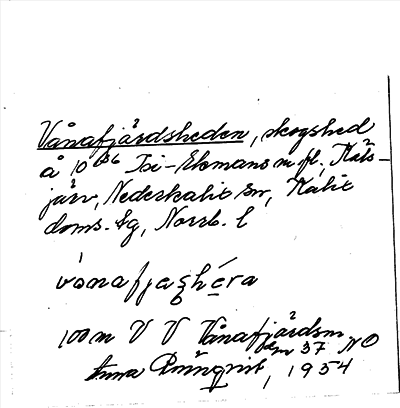 Vånafjärdsheden, skogshed
å 10 Isi-Ekmans m fl, Räks-
järv, Nederkalix sn, Kalix
doms. tg, Norrb. l
vånafjaʂhéra
100 m V V Vånafjärdsm
37 NO
Anna 1954